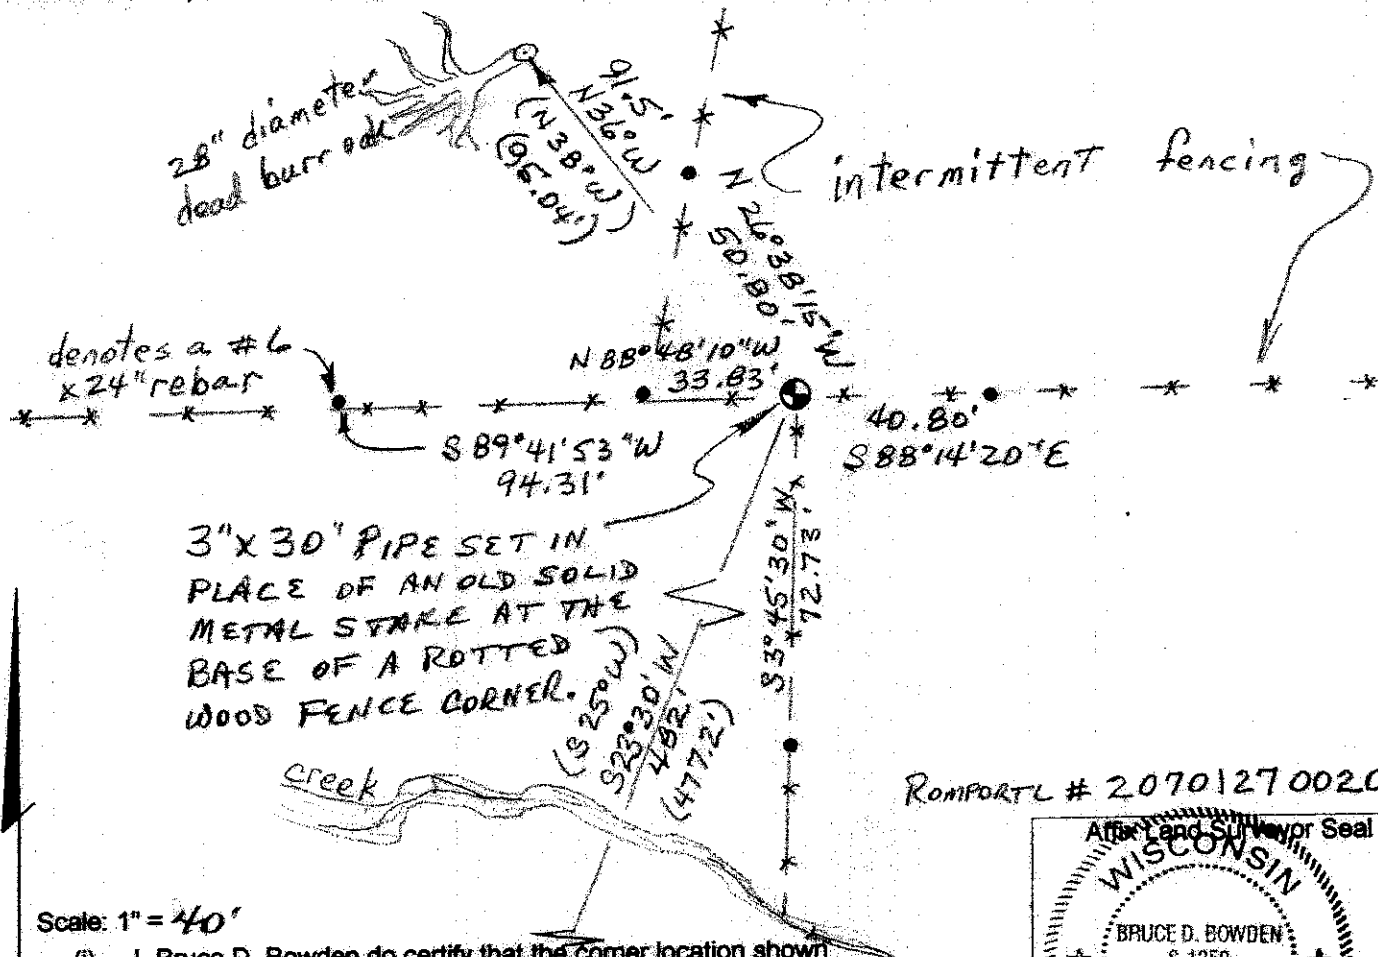 28" diameter
dead burr oak
91.5'
N36°W
(N38°W)
(95.04')
intermittent fencing
N 26°38'15"W
50.80'
denotes a #6
x 24" rebar
N 88°48'10"W
33.83'
S 89°41'53"W
94.31'
40.80'
S 88°14'20"E
3" x 30" PIPE SET IN
PLACE OF AN OLD SOLID
METAL STAKE AT THE
BASE OF A ROTTED
WOOD FENCE CORNER.
S 3°45'30"W
72.73'
(S 25°W)
S23°30'W
482'
(477.2')
creek
ROMPORTL # 20701270020
Affix Land Surveyor Seal
WISCONSIN
BRUCE D. BOWDEN
Scale: 1" = 40'
(i) I, Bruce D. Bowden do certify that the corner location shown